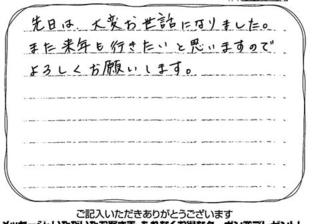 先日は、大変お世話になりました。
また来年も行きたいと思いますので
よろしくお願いします。
ご記入いただきありがとうございます